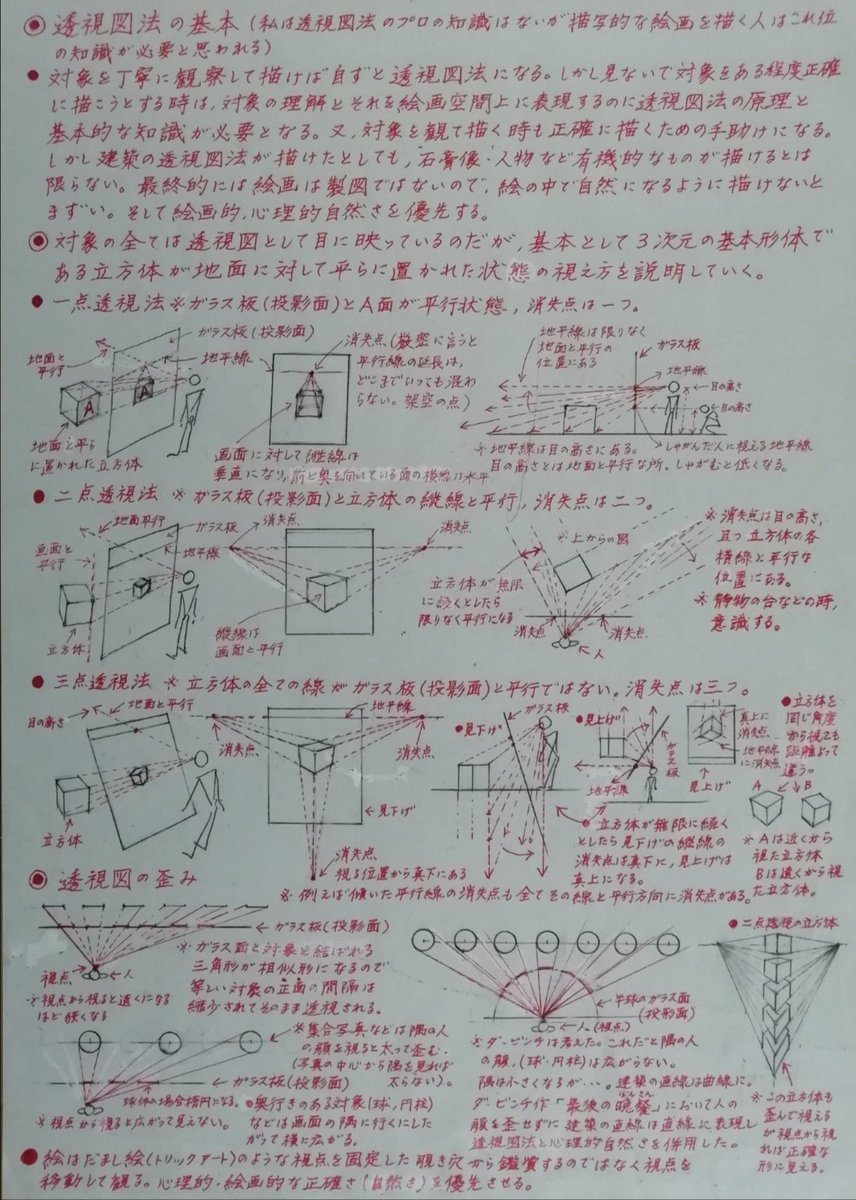 ◉ 透視図法の基本(私は透視図法のプロの知識はないが描写的な絵画を描く人はこれ位
の知識が必要と思われる)
● 対象を丁寧に観察して描けば自ずと透視図法になる。しかし見ないで対象をある程度正確
に描こうとする時は、対象の理解とそれを絵画空間上に表現するのに透視図法の原理と
基本的な知識が必要となる。又、対象を観て描く時も正確に描くための手助けになる。
しかし建築の透視図法が描けたとしても、石膏像・人物など有機的なものが描けるとは
限らない。最終的には絵画は製図ではないので、絵の中で自然になるように描けないと
まずい。そして絵画的、心理的自然さを優先する。
◉ 対象の全ては透視図として目に映っているのだが、基本として3次元の基本形体で
ある立方体が地面に対して平らに置かれた状態の視え方を説明していく。
● 一点透視法 ※ガラス板(投影面)とA面が平行状態, 消失点は一つ。
地面と
平行
ガラス板(投影面)
地平線
A
A
地面と平ら
に置かれた立方体
消失点(厳密に言うと
平行線の延長は、
どこまでいっても混わ
らない。架空の点)
画面に対して縦線は
垂直になり、前と奥を向いている面の横線は水平
地平線は限りなく
地面と平行の
位置にある
ガラス板
地平線
目の高さ
目の高さ
しゃがんだ人に視える地平線
※地平線は目の高さにある。
目の高さとは地面と平行な所。しゃがむと低くなる。
● 二点透視法 ※ガラス板(投影面)と立方体の縦線と平行, 消失点は二つ。
地面平行
ガラス板
画面と
平行
地平線
立方体
消失点
消失点
縦線は
画面と平行
※上からの図
立方体が無限
に続くとしたら
限りなく平行になる
消失点
消失点
人
※消失点は目の高さ、
且つ立方体の各
横線と平行な
位置にある。
※静物の台などの時、
意識する。
● 三点透視法 ※立方体の全ての線がガラス板(投影面)と平行ではない。消失点は三つ。
目の高さ
地面と平行
立方体
地平線
消失点
消失点
見下げ
消失点
視る位置から真下にある
ガラス板
●見下げ
●見上げ
ガラス板
地平線
真上に
消失点
地平線
に消失点
見上げ
● 立方体が無限に続く
としたら見下げの縦線の
消失点は真下に, 見上げは
真上になる。
●立方体を
同じ角度
から視ても
距離よって
違う。
A
B
※Aは近くから
視た立方体
Bは遠くから視
た立方体。
※例えば傾いた平行線の消失点も全てその線と平行方向に消失点がある。
◉ 透視図の歪み
ガラス板(投影面)
視点
人
※視点から視ると遠くになる
ほど狭くなる
※ガラス面と対象と結ばれる
三角形が相似形になるので
等しい対象の正面の間隔は
縮少されてそのまま透視される。
※集合写真などは隅の人
の顔を視ると太って歪む。
(写真の中心から隅を見れば
太らない)。
ガラス板(投影面)
球体の場合楕円になる。
※視点から視ると広がって見えない。
●奥行きのある対象(球, 円柱)
などは画面の隅に行くにした
がって横に広がる。
半球のガラス面
(投影面)
人(視点)
※ダ・ビンチは考えた。これだと隅の人
の顔, (球・円柱)は広がらない。
隅は小さくなるが・・・。建築の直線は曲線に。
ダ・ビンチ作「最後の晩餐」において人の
ばんさん
顔を歪せずに建築の直線は直線に表現し
透視図法と心理的自然さを併用した。
●二点透視の立方体
※この立方体も
歪んで視える
が視点から視
れば正確な
形に見える。
● 絵はだまし絵(トリックアート)のような視点を固定した覗き穴から鑑賞するのではなく視点を
移動して観る。心理的・絵画的な正確さ(自然さ)を優先させる。